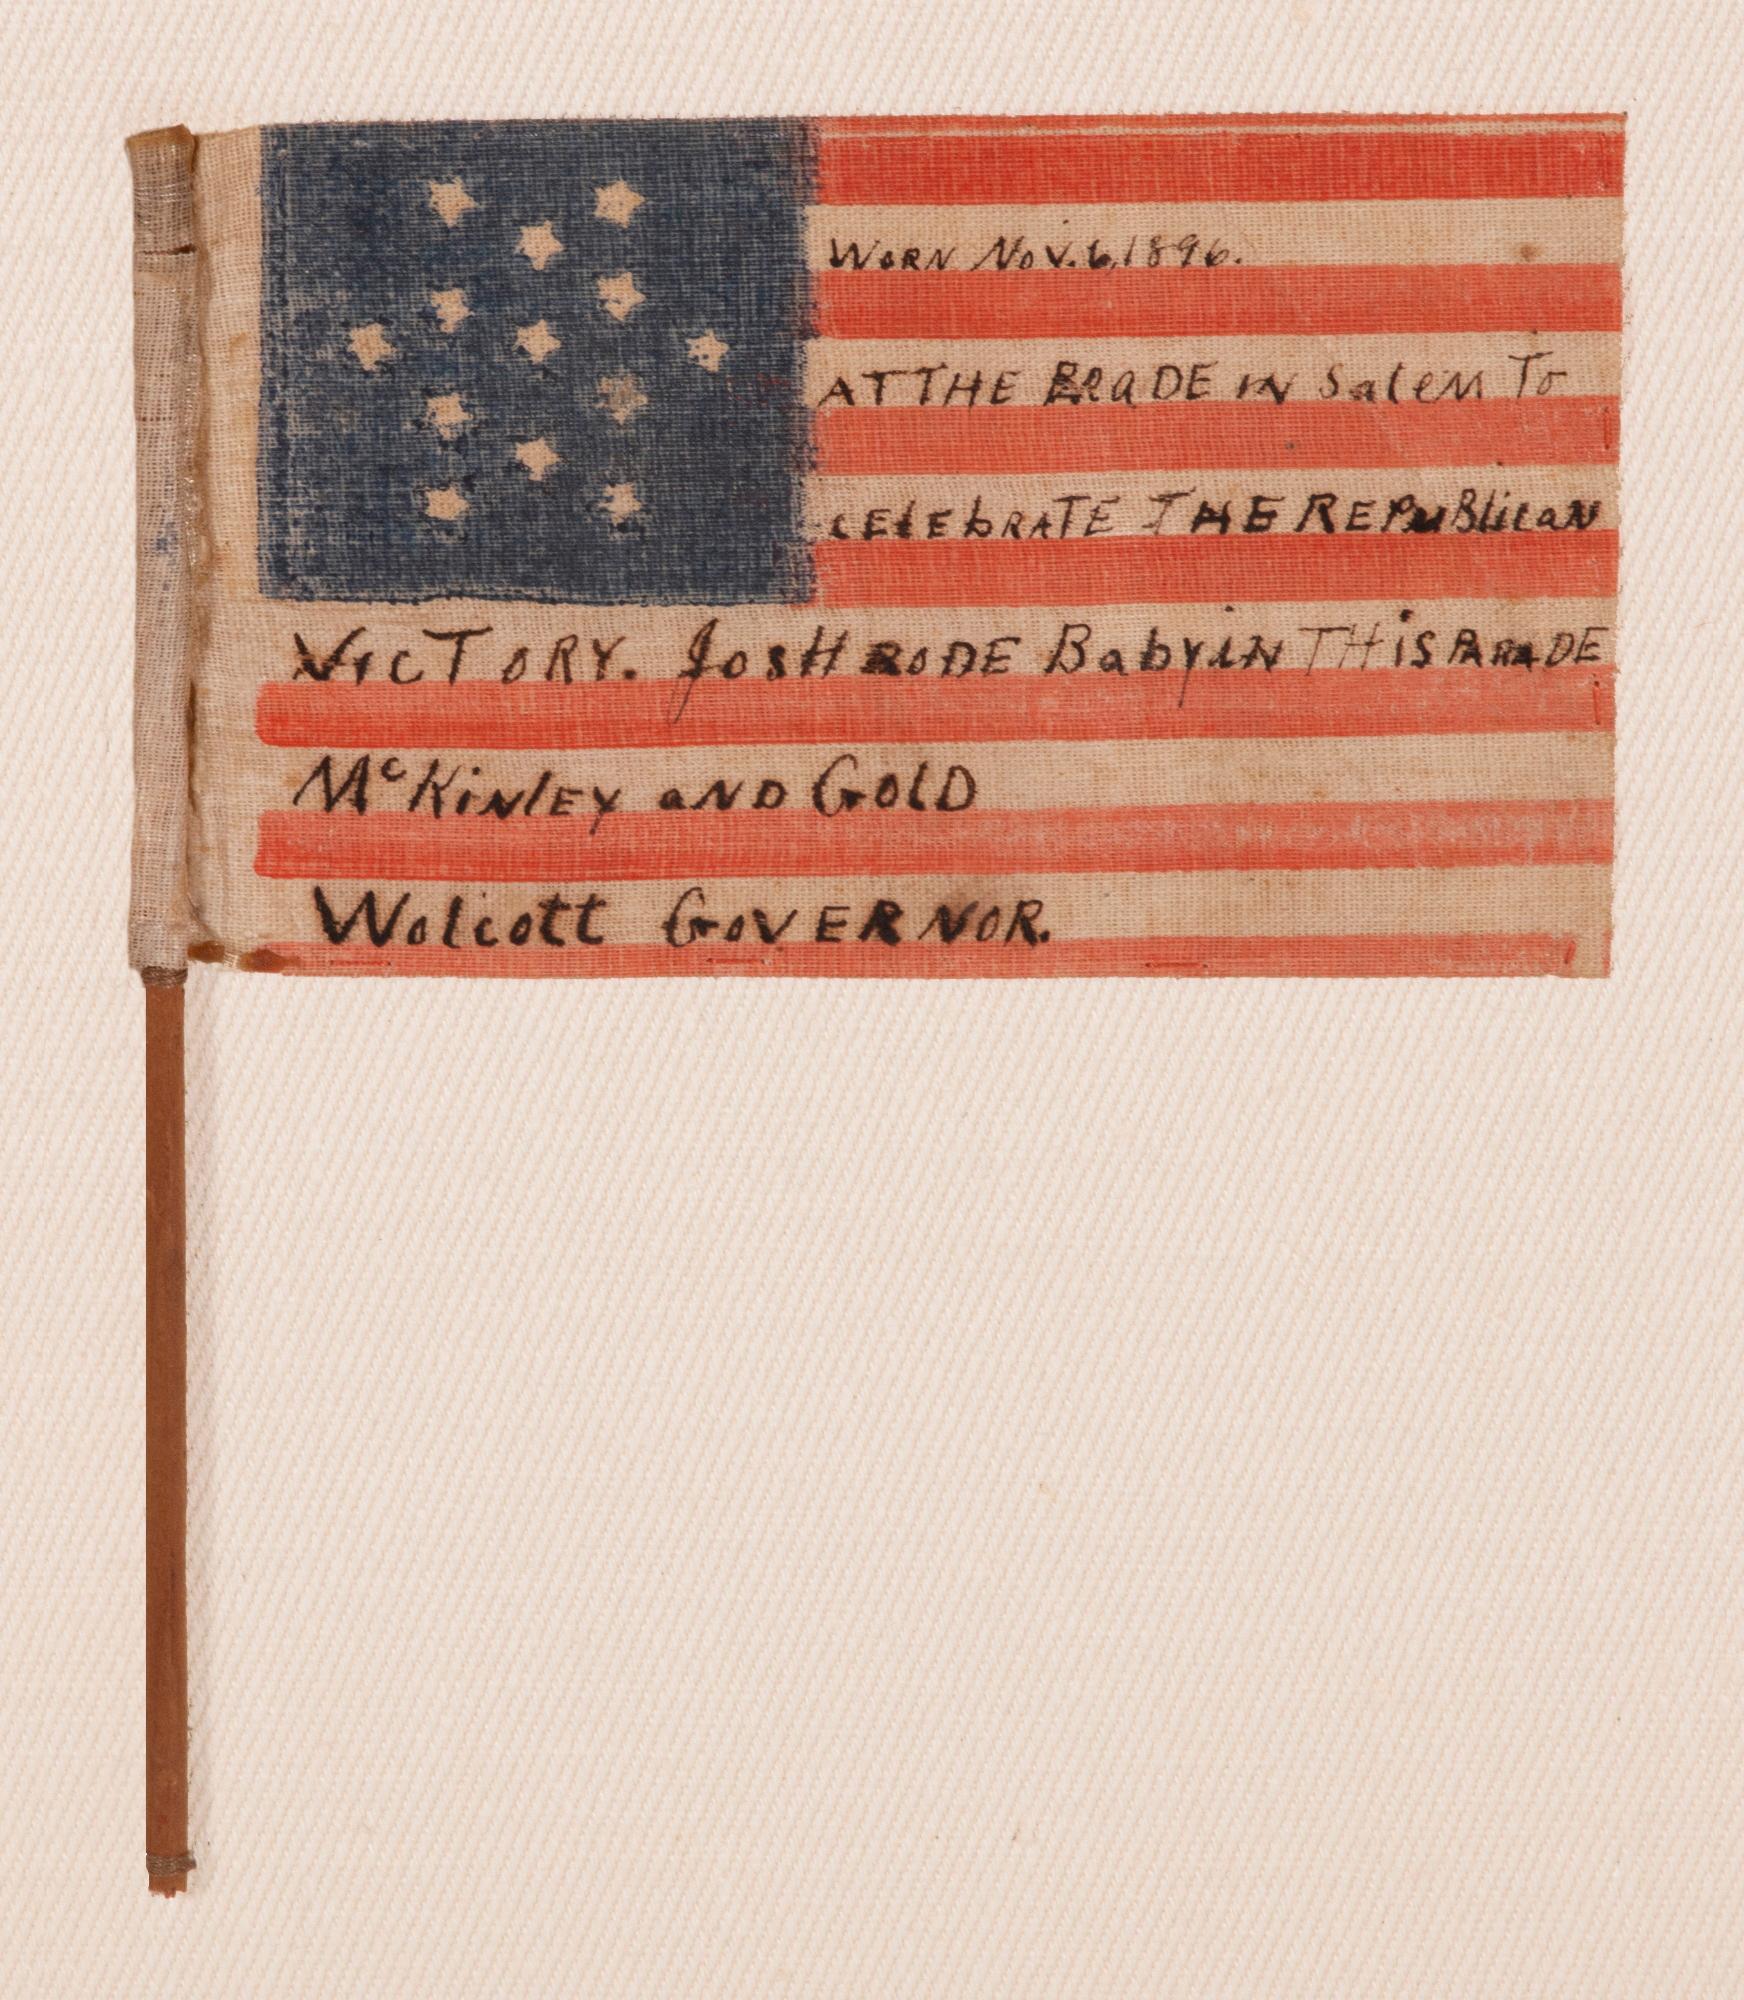 WORN NOV. 6, 1896.
AT THE PRADE IN Salem To
CElEbRATE THE REPuBlicaN
VICTORY. JosH RODE Baby iN THiS PARADE
McKiNlEY aND GOlD
Wolcott GOVERNOR.